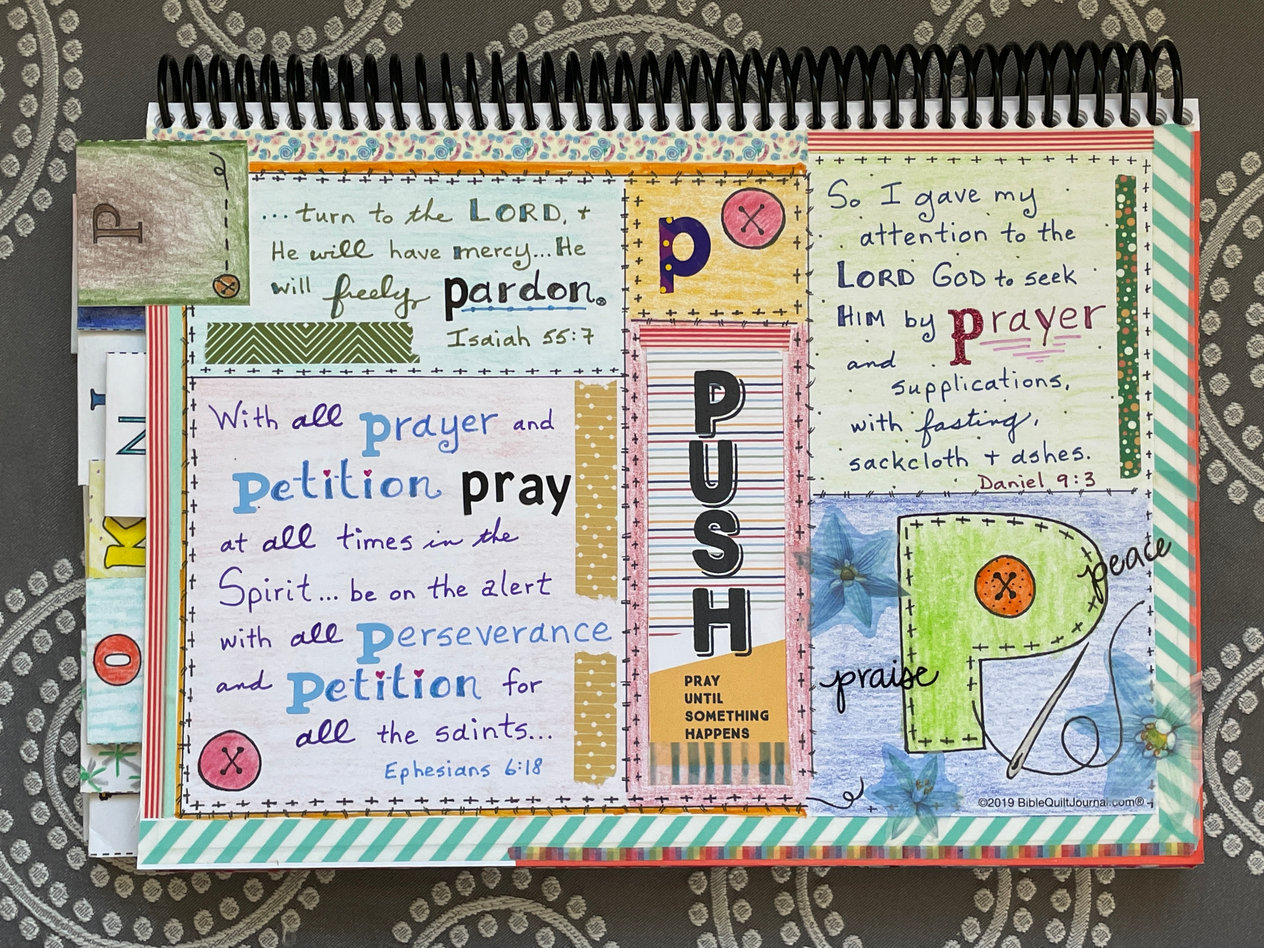 P
... turn to the LORD, +
He will have mercy... He
will freely pardon.
Isaiah 55:7
p
With all prayer and
petition pray
at all times in the
Spirit... be on the alert
with all perseverance
and petition for
all the saints...
Ephesians 6:18
PUSH
PRAY
UNTIL
SOMETHING
HAPPENS
So I gave my
attention to the
LORD GOD to seek
HIM by prayer
and
supplications,
with fasting,
sackcloth + ashes.
Daniel 9:3
P
peace
praise
©2019 BibleQuiltJournal.com®
N
K
O